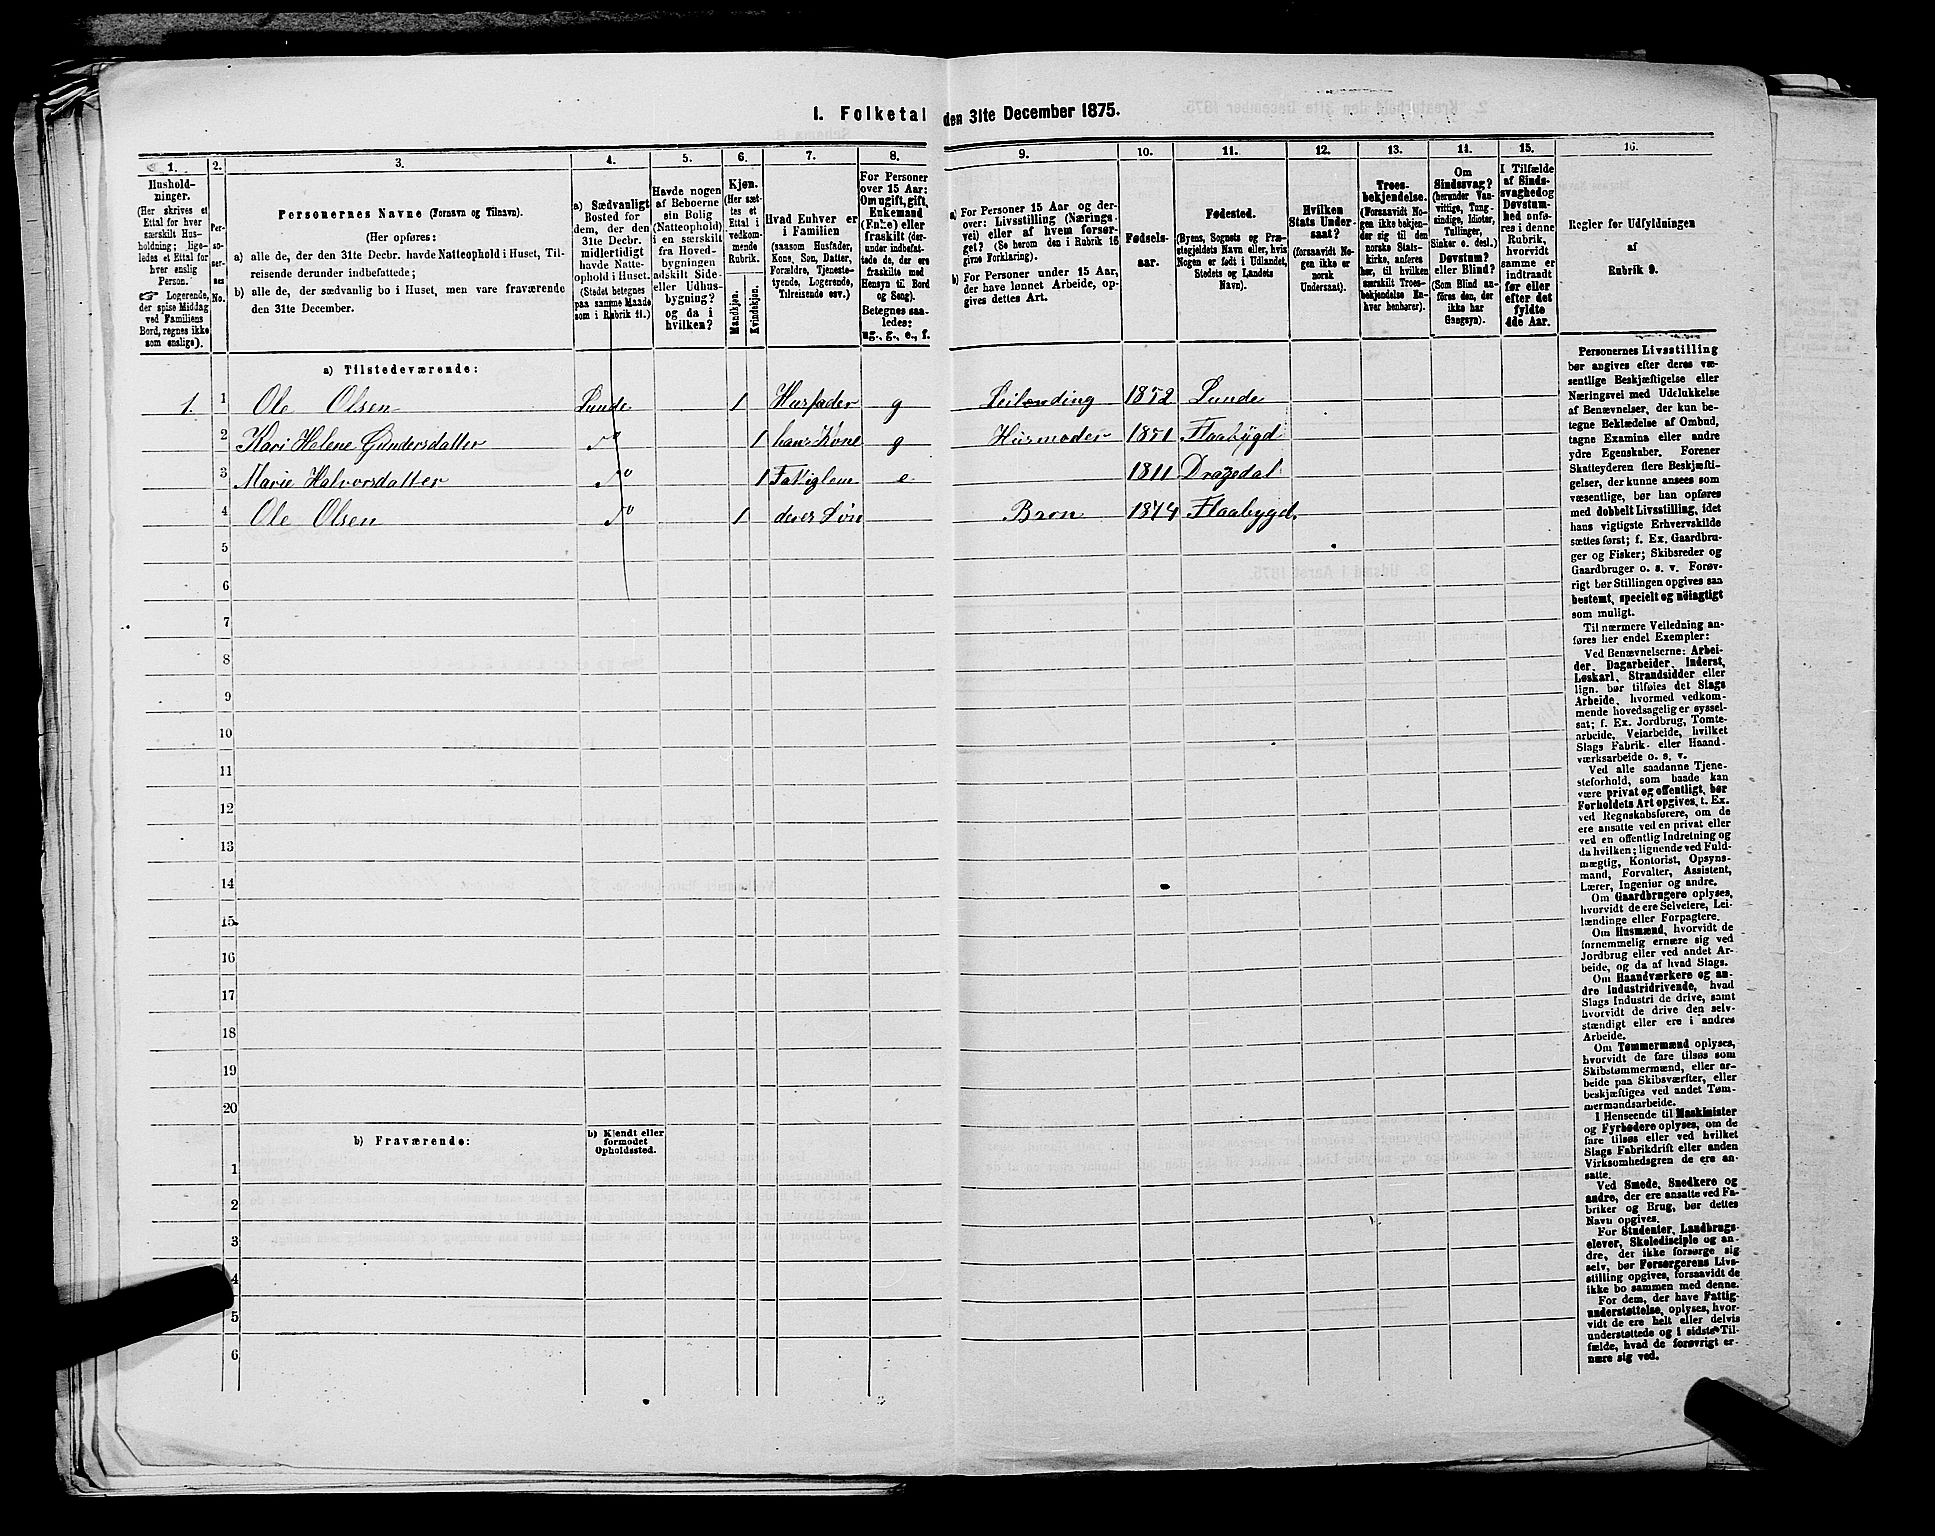 I. Folketal den 31te December 1875.
1.
2.
3.
4.
5.
6.
7.
8.
9.
10.
11.
12.
13.
14.
15.
16.
Hushold-
ninger.
(Her skrives et
Ettal for hver
særskilt Hus-
holdning; lige-
ledes et Ettal for
hver enslig
Person.
☞ Logerende,
der spise Middag
ved Familiens
Bord, regnes ikke
som enslige).
Per-
so-
ner-
nes
No.
Personernes Navne (Fornavn og Tilnavn).
(Her opføres:
a) alle de, der den 31te Decbr. havde Natteophold i Huset, Til-
reisende derunder indbefattede;
b) alle de, der sædvanlig bo i Huset, men vare fraværende
den 31te December.
a) Sædvanligt
Bosted for
dem, der den
31te Decbr.
midlertidigt
havde Natte-
ophold i Huset.
(Stedet betegnes
paa samme Maade
som i Rubrik 11.)
Havde nogen
af Beboerne
sin Bolig
(Natteophold)
i en særskilt
fra Hoved-
bygningen
adskilt Side-
eller Udhus-
bygning?
og da i
hvilken?
Kjøn.
(Her sæt-
tes et
Ettal i
vedkom-
mende
Rubrik.
Mandkjøn.
Kvindekjøn.
Hvad Enhver er
i Familien
(saasom Husfader,
Kone, Søn, Datter,
Forældre, Tjeneste-
tyende, Logerende,
Tilreisende osv.)
For Personer
over 15 Aar:
Om ugift, gift,
Enkemand
(Enke) eller
fraskilt (der-
under indbefat-
tede de, der ere
fraskilte med
Hensyn til Bord
og Seng).
Betegnes saa-
ledes:
ug., g., e., f.
a) For Personer 15 Aar og der-
over: Livsstilling (Nærings-
vei) eller af hvem forsør-
get? (Se herom den i Rubrik 16
givne Forklaring).
b) For Personer under 15 Aar,
der have lønnet Arbeide, op-
gives dettes Art.
Fødsels-
aar.
Fødested.
(Byens, Sognets og Præ-
stegjeldets Navn eller, hvis
Nogen er født i Udlandet,
Stedets og Landets
Navn).
Hvilken
Stats Under-
saat?
(forsaavidt No-
gen ikke er
norsk
Undersaat).
Troes-
bekjendelse.
(Forsaavidt No-
gen ikke beken-
der sig til den
norske Stats-
kirke, anføres
her, til hvilken
særskilt Troes-
bekjendelse En-
hver henhører).
Om
Sindssvag?
(herunder Van-
vittige, Tung-
sindige, Idioter,
Tullinger,
Sinker o. desl.)
Døvstum?
eller Blind?
(Som Blind an-
føres den, der
ikke har
Gangsyn).
I Tilfælde
af Sinds-
svaghed og
Døvstum-
hed anfø-
res i denne
Rubrik,
hvorvidt
samme er
indtraadt
før eller
efter det
fyldte
4de Aar.
Regler for Udfyldningen
af
Rubrik 9.
a) Tilstedeværende:
1. 1 Ole Olsen Lunde 1 Husfader g Leilending 1852 Lunde
2 Kari Helene Gundersdatter do 1 hans Kone g Husmoder 1851 Flaabygd
3 Marie Halvorsdatter do 1 Fatiglem e 1811 Drangedal
4 Ole Olsen do 1 deres Søn 1874 Flaabygd.
5
6
7
8
9
10
11
12
13
14
15
16
17
18
19
20
b) Fraværende:
b) Kjendt eller
formodet
Opholdssted.
1
2
3
4
5
6
Personernes Livsstilling
bør angives efter deres væ-
sentlige Beskjæftigelse eller
Næringsvei med Udelukkelse
af Benævnelser, der kun be-
tegne Beklædelse af Ombud,
tagne Examina eller andre
ydre Egenskaber. Forener
Skatteyderen flere Beskjæfti-
gelser, der kunne ansees som
væsentlige, bør han opføres
med dobbelt Livsstilling, idet
hans vigtigste Erhvervskilde
sættes først; f. Ex. Gaardbru-
ger og Fisker; Skibsreder og
Gaardbruger o. s. v. Forøv-
rigt bør Stillingen opgives saa
bestemt, specielt og nöiagtigt
som muligt.
Til nærmere Veiledning an-
føres her endel Exempler:
Ved Benævnelserne: Arbei-
der, Dagarbeider, Inderst,
Løskarl, Strandsidder eller
lign. bør tilføies det Slags
Arbeide, hvormed vedkom-
mende hovedsagelig er syssel-
sat; f. Ex. Jordbrug, Tomte-
arbeide, Veiarbeide, hvilket
Slags Fabrik- eller Haand-
værksarbeide o. s. v.
Ved alle saadanne Tjene-
steforhold, som baade kan
være privat og offentligt, bør
Forholdets Art opgives, t. Ex.
ved Regnskabsførere, om de
ere ansatte ved en privat eller
ved en offentlig Indretning og
da hvilken; lignende ved Fuld-
mægtig, Kontorist, Opsyns-
mand, Forvalter, Assistent,
Lærer, Ingeniør og andre.
Om Gaardbrugere oplyses,
hvorvidt de ere Selveiere, Lei-
lændinge eller Forpagtere.
Om Husmænd, hvorvidt de
fornemmelig ernære sig ved
Jordbrug eller ved andet Ar-
beide, og da af hvad Slags.
Om Haandværkere og an-
dre Industridrivende, hvad
Slags Industri de drive, samt
hvorvidt de drive den selv-
stændigt eller ere i andres
Arbeide.
Om Tømmermænd oplyses,
hvorvidt de fare tilsøs som
Skibstømmermænd, eller ar-
beide paa Skibsværfter, eller
beskjæftiges ved andet Tøm-
mermandsarbeide.
I Henseende til Maskinister
og Fyrbødere oplyses, om de
fare tilsøs eller ved hvilket
Slags Fabrikdrift eller anden
Virksomhedsgren de ere an-
satte.
Ved Smede, Snedkere og
andre, der ere ansatte ved Fa-
briker og Brug, bør dettes
Navn opgives.
For Studenter, Landbrugs-
elever, Skoledisciple og an-
dre, der ikke forsørge sig
selv, bør Forsørgerens Livs-
stilling opgives, forsaavidt de
ikke bo sammen med denne.
For dem, der have Fattig-
understøttelse, oplyses, hvor-
vidt de ere helt eller delvis
understøttede og i sidste Til-
fælde, hvad de forøvrigt er-
nære sig ved.